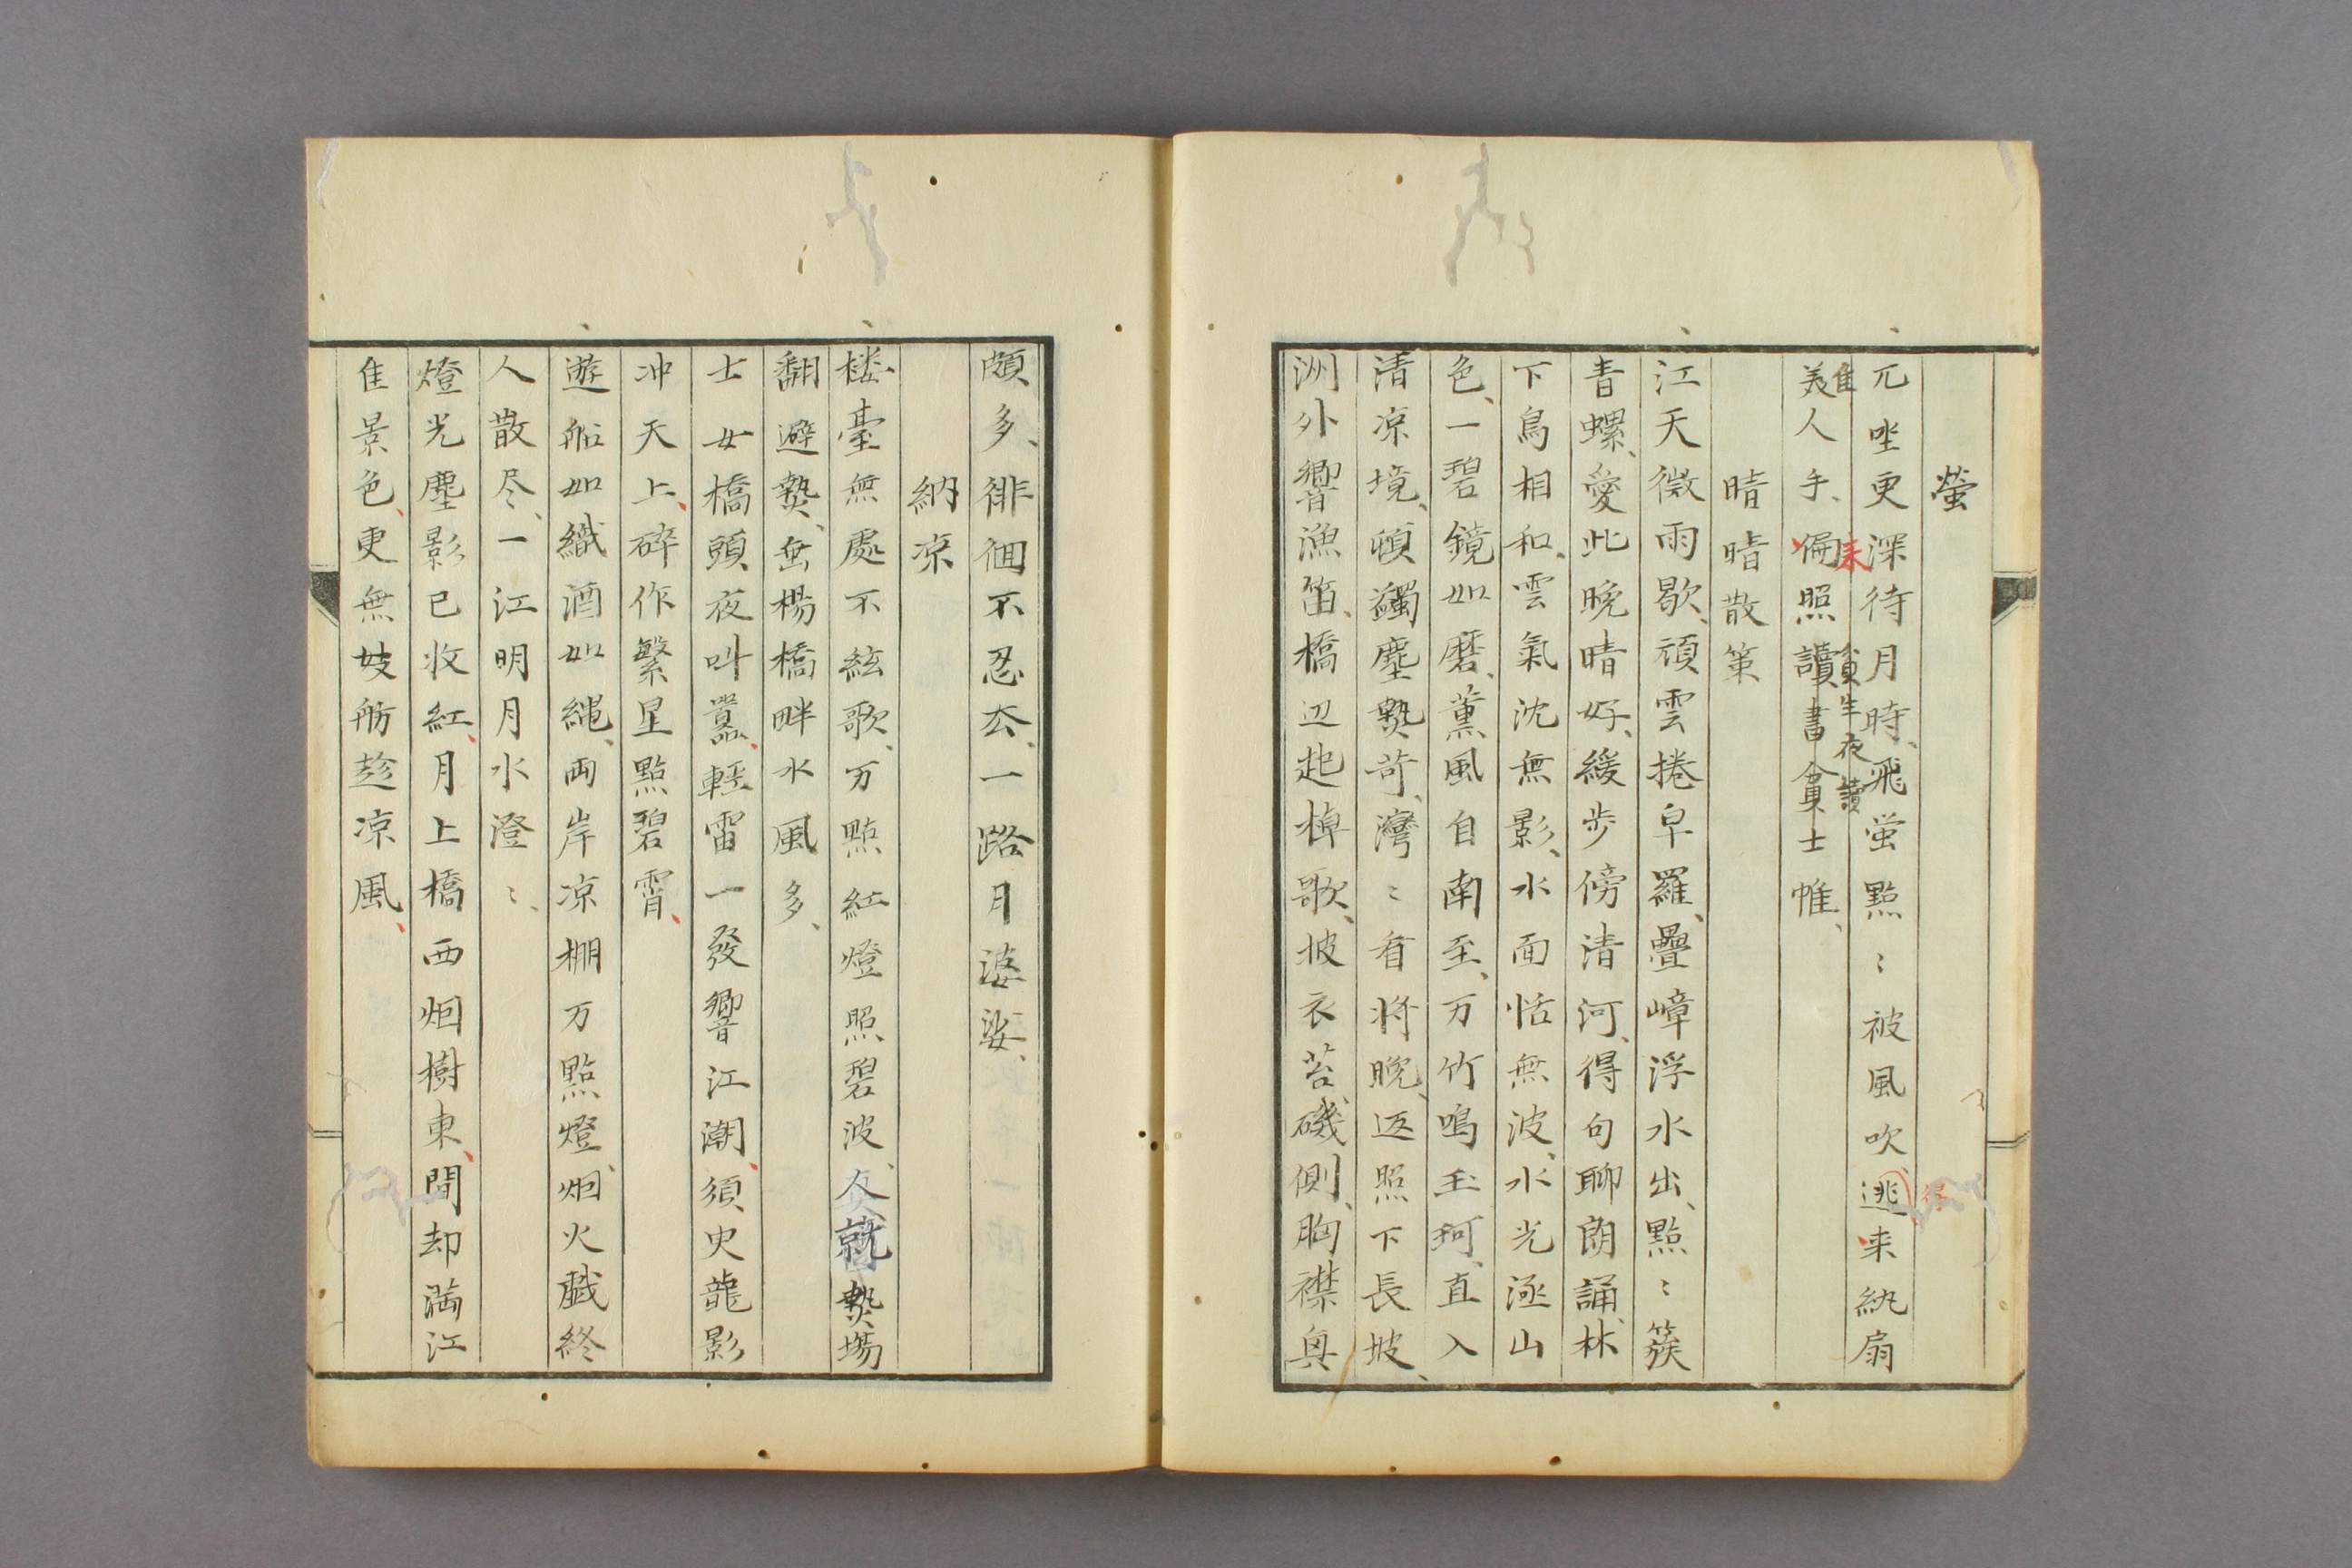 螢
兀坐更深待月時、飛蛍點〻被風吹、逃来紈扇
美人手、偏照讀書貧士帷、
隹
未
貧生夜讀
晴晴散策
江天微雨歇、頑雲捲皁羅、疊嶂浮水出、點〻簇
青螺、愛此晩晴好、緩歩傍清河、得句聊朗誦、林
下鳥相和、雲氣沈無影、水面恬無波、水光逐山
色、一碧鏡如磨、薫風自南至、万竹鳴玉珂、直入
清凉境、頓蠲塵𤍠苛、灣〻看将晩、返照下長坡、
洲外響漁笛、橋辺起棹歌、披衣苔磯側、胸襟興
頗多、徘徊不忍去、一路月婆娑、
納凉
楼臺無處不絃歌、万點紅燈照碧波、人就𤍠場
翻避𤍠、垂楊橋畔水風多、
士女橋頭夜叫囂、輕雷一發響江潮、須臾龍影
冲天上、碎作繁星點碧霄、
遊船如織酒如縄、両岸凉棚万點燈、烟火戯終
人散尽、一江明月水澄〻、
燈光塵影已收紅、月上橋西烟樹東、間却満江
隹景色、更無妓舫趁凉風、